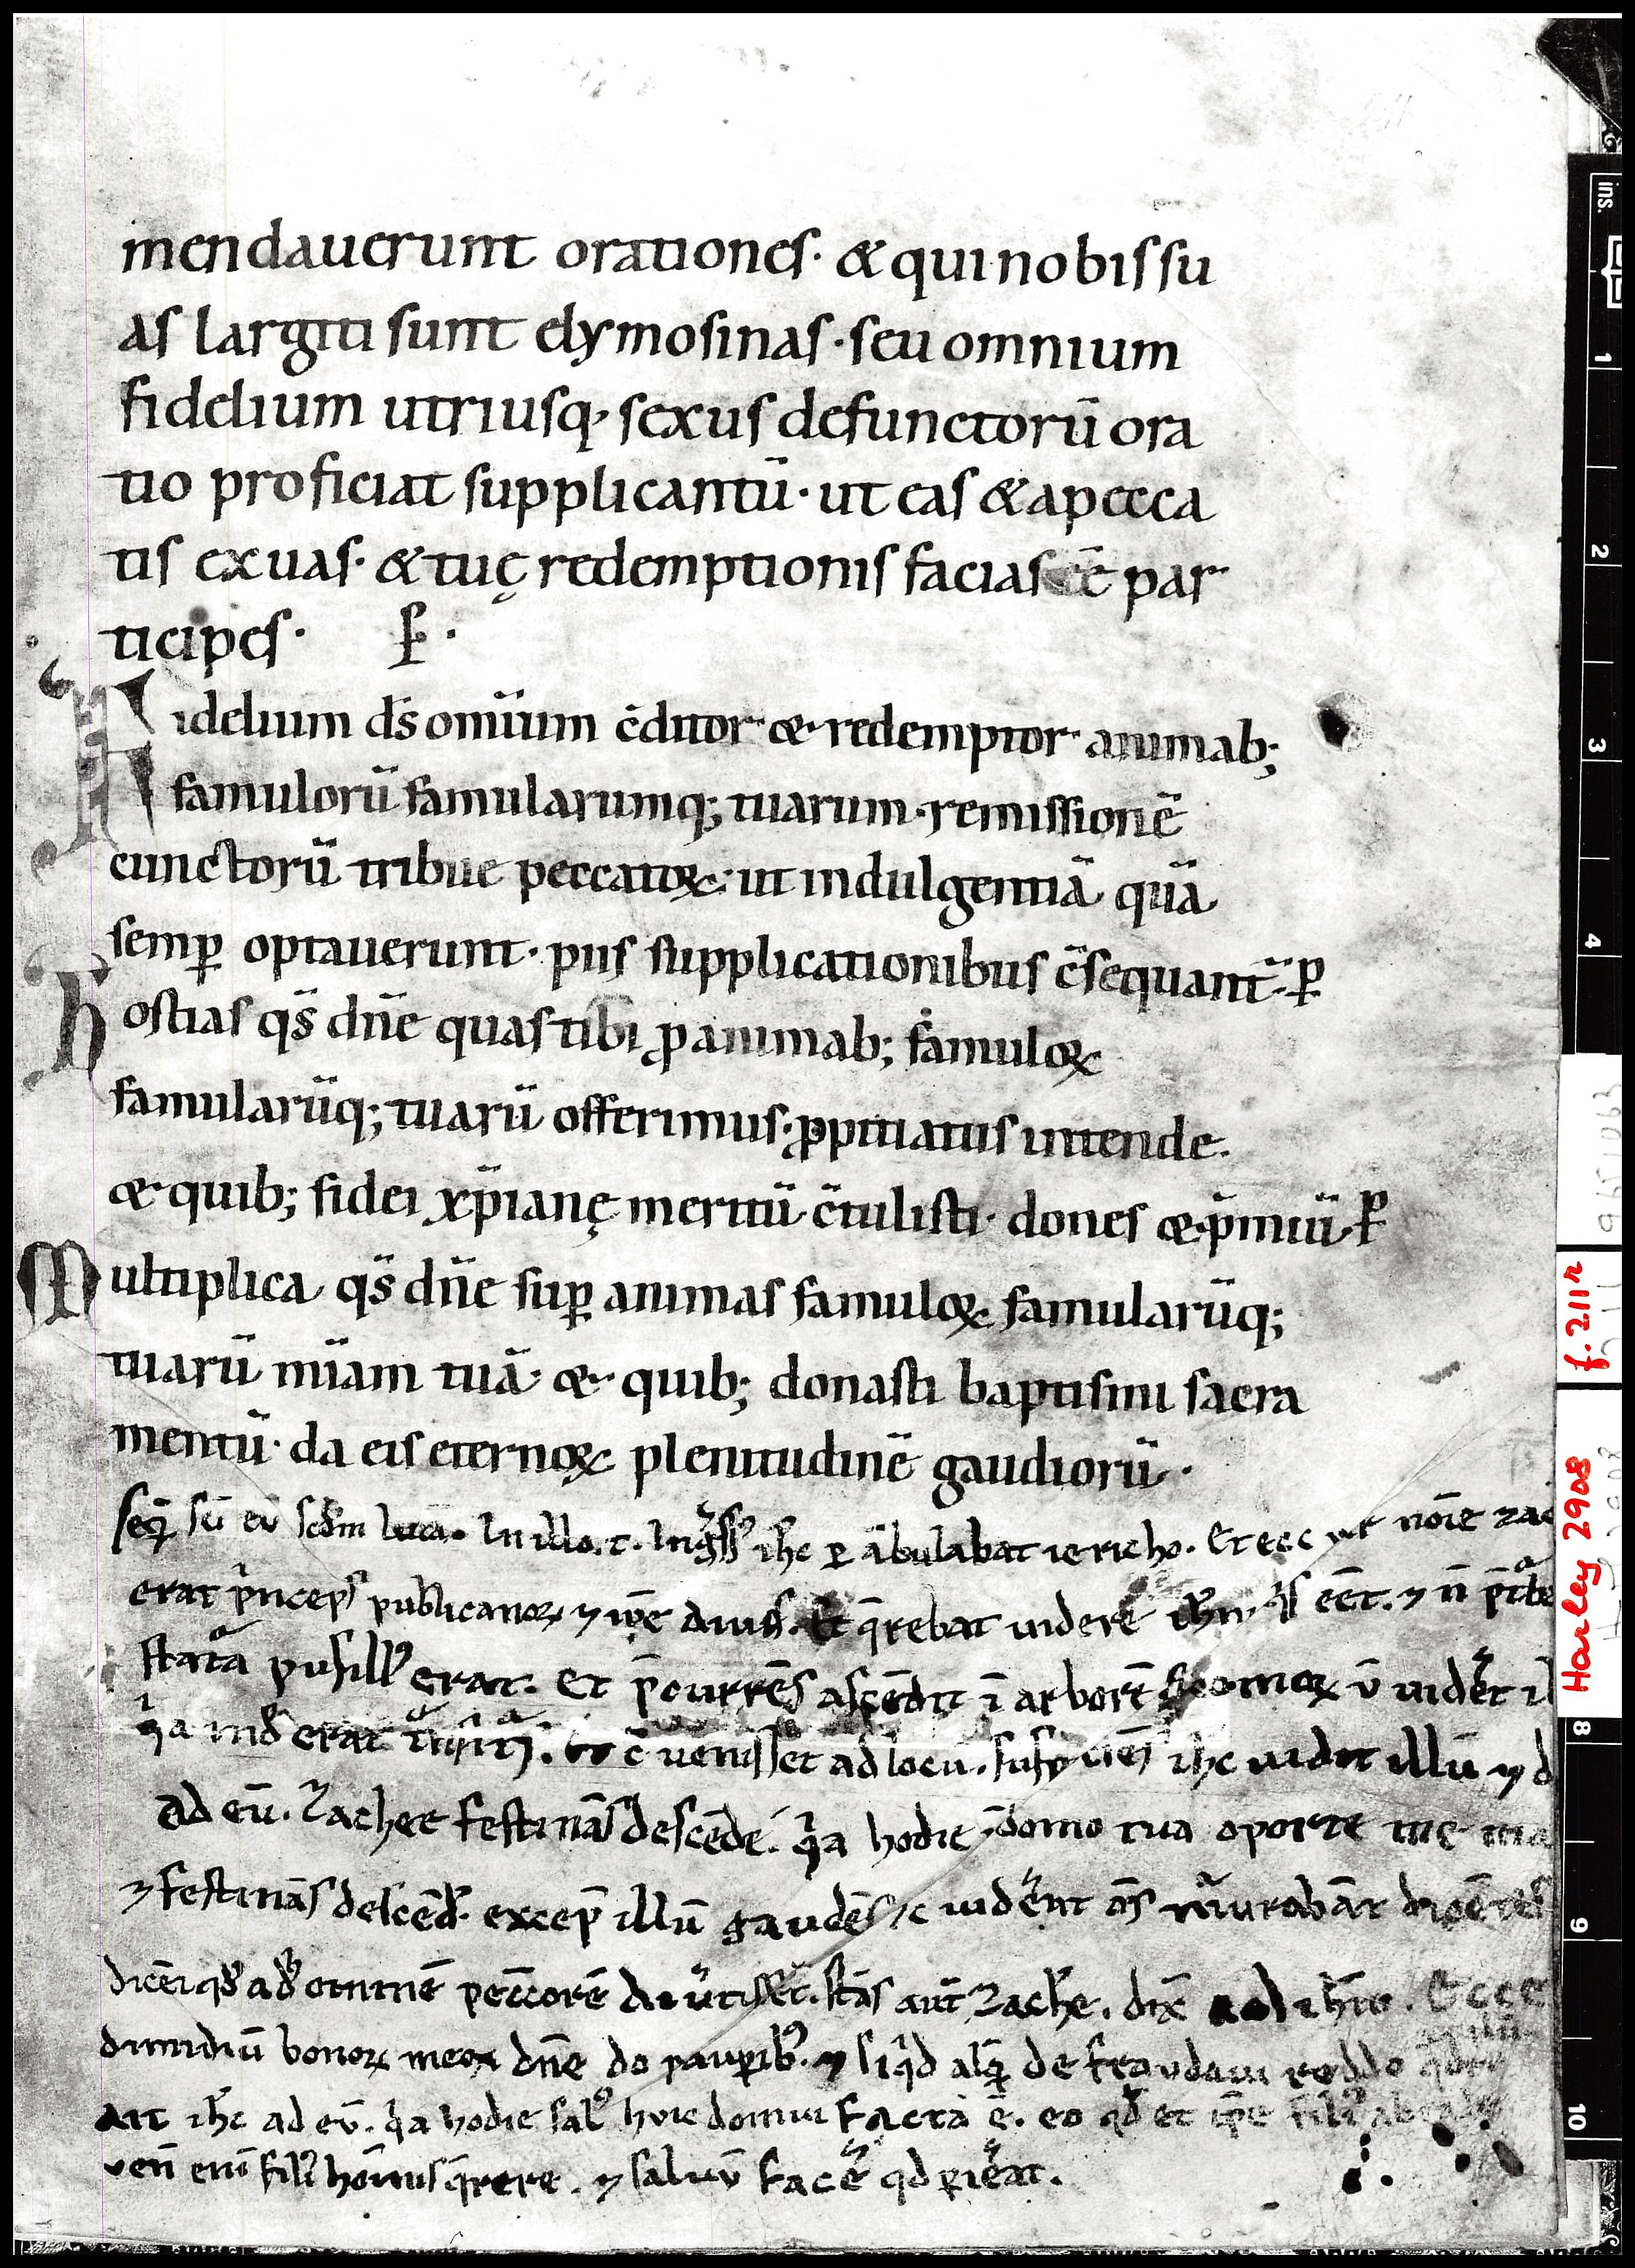 mendauerunt orationes· & qui nobis su
as largiti sunt elymosinas· seu omnium
fidelium utriusq; sexus defunctorū ora
tio proficiat supplicantū· ut eas & a pecca
tis exuas· & tuę redemptionis facias ēē par
ticipes· P̄·
Fidelium d̄s omīum c̄ditor & redemptor animab;
famulorū famularumq; tuarum· remissionē
cunctorū tribue peccatoꝝ· ut indulgentiā quā
semꝑ optauerunt· piis supplicationibus c̄sequant̄· ꝑ
Hostias qs̄ dn̄e quas tibi ꝓ animab; famuloꝝ
famularūq; tuarū offerimus· ꝓpitiatus intende·
& quib; fidei xp̄ianę meritū c̄tulisti· dones & p̄miū· ꝑ
Multiplica qs̄ dn̄e suꝑ animas famuloꝝ famularūq;
tuarū mīam tuā· & quib; donasti baptismi sacra
mentū· da eis eternoꝝ plenitudinē gaudiorū·
seq̄ sc̄i eū scd̄m lucā. In illo. t. Ingͣss᷒ ih̄c ꝑ ābulabat iericho. Et ecc uir noīe zac
erat pͥnceps publicanoꝝ ⁊ ip̄e diues. Et q̄rebat uidere ih̄m qͥs eēt. ⁊ n̄
statͣa pusill᷒ erat. Et p̄currēs ascēdit ī arborē sicomoꝝ ū uidēt il
qͥa inđ erat. Et c̄ uenisset ad locū. suspiciēs ih̄c uidit illū ⁊ d
ad eū. Zachee festinās descēde. qͥa hodie ī domo tua oporte me ma
⁊ festinās descēd. excep̄ illū gaudēs. c uidēnt ōs murmurabāt dicētes
dicēt qđ ad ominē peccorē diūtisset. stās aut̄ Zache. dix̄ ad ih̄m. Ecce
dimidiū bonoꝝ meoꝝ dn̄e do pauꝑib᷒. ⁊ si qͥd alq̄ de fraudaui reddo
ait ih̄c ad eū. qͥa hodie sal᷒ huic domui facta ē. eo qđ et ip̄e fili᷒
uen̄ eni fili᷒ hom̄nis q̄rere. ⁊ saluū facē qđ ꝑiēat.
ins.
1
2
3
4
8
9
10
f. 211r
Harley 2908